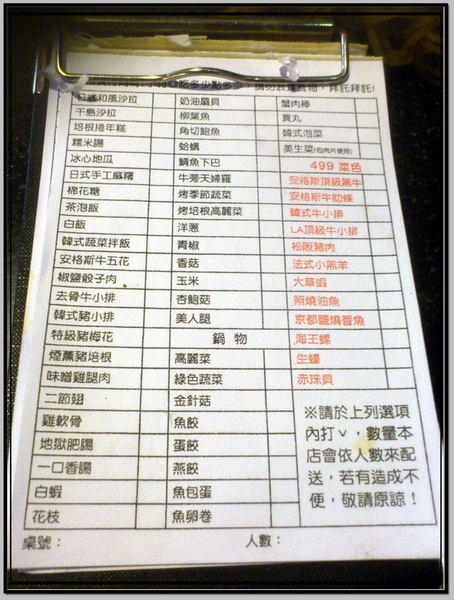 吃多少點多少,請勿浪費食物,拜託拜託!
日式和風沙拉 奶油扇貝 蟹肉棒
千島沙拉 柳葉魚 貢丸
培根捲年糕 角切鮑魚 韓式泡菜
糯米腸 蛤蠣 美生菜(包肉片使用)
冰心地瓜 鯖魚下巴 499 菜色
日式手工麻糬 牛蒡天婦羅 安格斯頂級黑牛
棉花糖 烤季節蔬菜 安格斯牛肋條
茶泡飯 烤培根高麗菜 韓式牛小排
白飯 洋蔥 LA頂級牛小排
韓式蔬菜拌飯 青椒 松阪豬肉
安格斯牛五花 香菇 法式小羔羊
椒鹽骰子肉 玉米 大草蝦
去骨牛小排 杏鮑菇 照燒油魚
韓式豬小排 美人腿 京都鹽燒香魚
特級豬梅花 鍋 物 海王螺
煙薰豬培根 高麗菜 生蠔
味噌雞腿肉 綠色蔬菜 赤珠貝
二節翅 金針菇
雞軟骨 魚餃
地獄肥腸 蛋餃
一口香腸 燕餃
白蝦 魚包蛋
花枝 魚卵卷
※請於上列選項
內打ˇ,數量本
店會依人數來配
送,若有造成不
便,敬請原諒!
桌號: 人數: